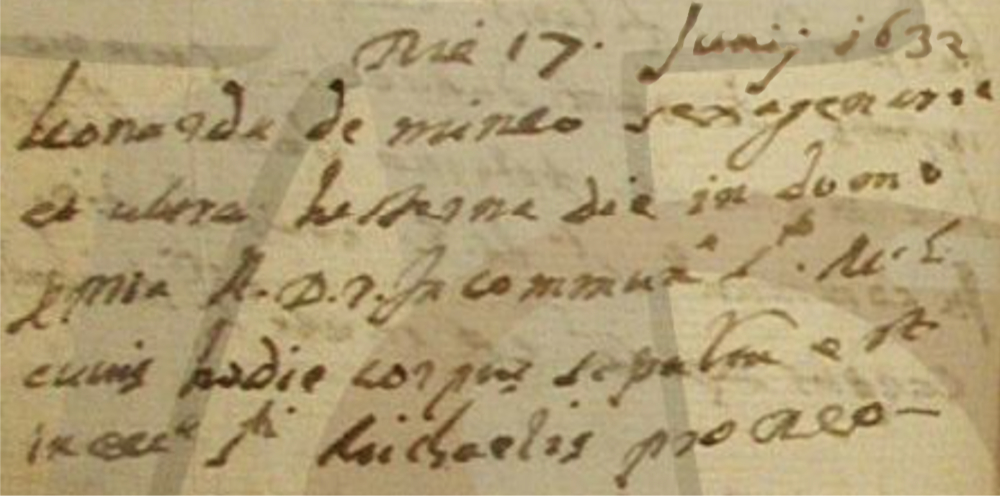 Die 17. Junij 1632
Leonarda de mineo sexagenaria
et ultra hesterna die in domo
ppria A.D.r. In commun.e S.te M.E.
cuius hodie corpus sepultu est
in ecc.a S.ti Michaelis pro Deo—